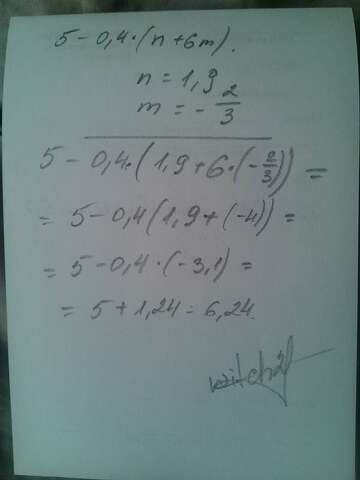 5 - 0,4 · (n + 6m).
n = 1,9
m = - 2/3
5 - 0,4 · (1,9 + 6 · (- 2/3)) =
= 5 - 0,4 (1,9 + (-4)) =
= 5 - 0,4 · (-3,1) =
= 5 + 1,24 = 6,24.